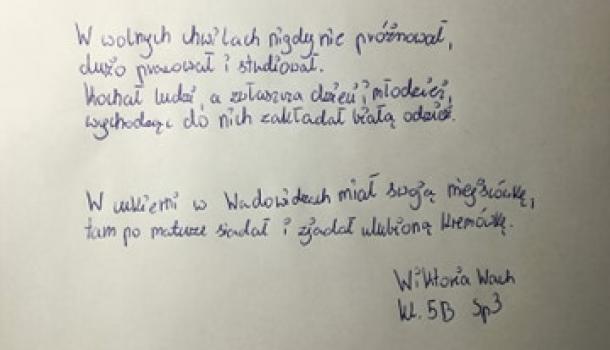 W wolnych chwilach nigdy nie próżnował,
dużo pracował i studiował.
Kochał ludzi, a zwłaszcza dzieci i młodzież,
wychodząc do nich zakładał białą odzież.
W cukierni w Wadowicach miał swoją miejscówkę,
tam po maturze siadał i zjadał ulubioną kremówkę.
Wiktoria Wach
kl. 5B Sp3